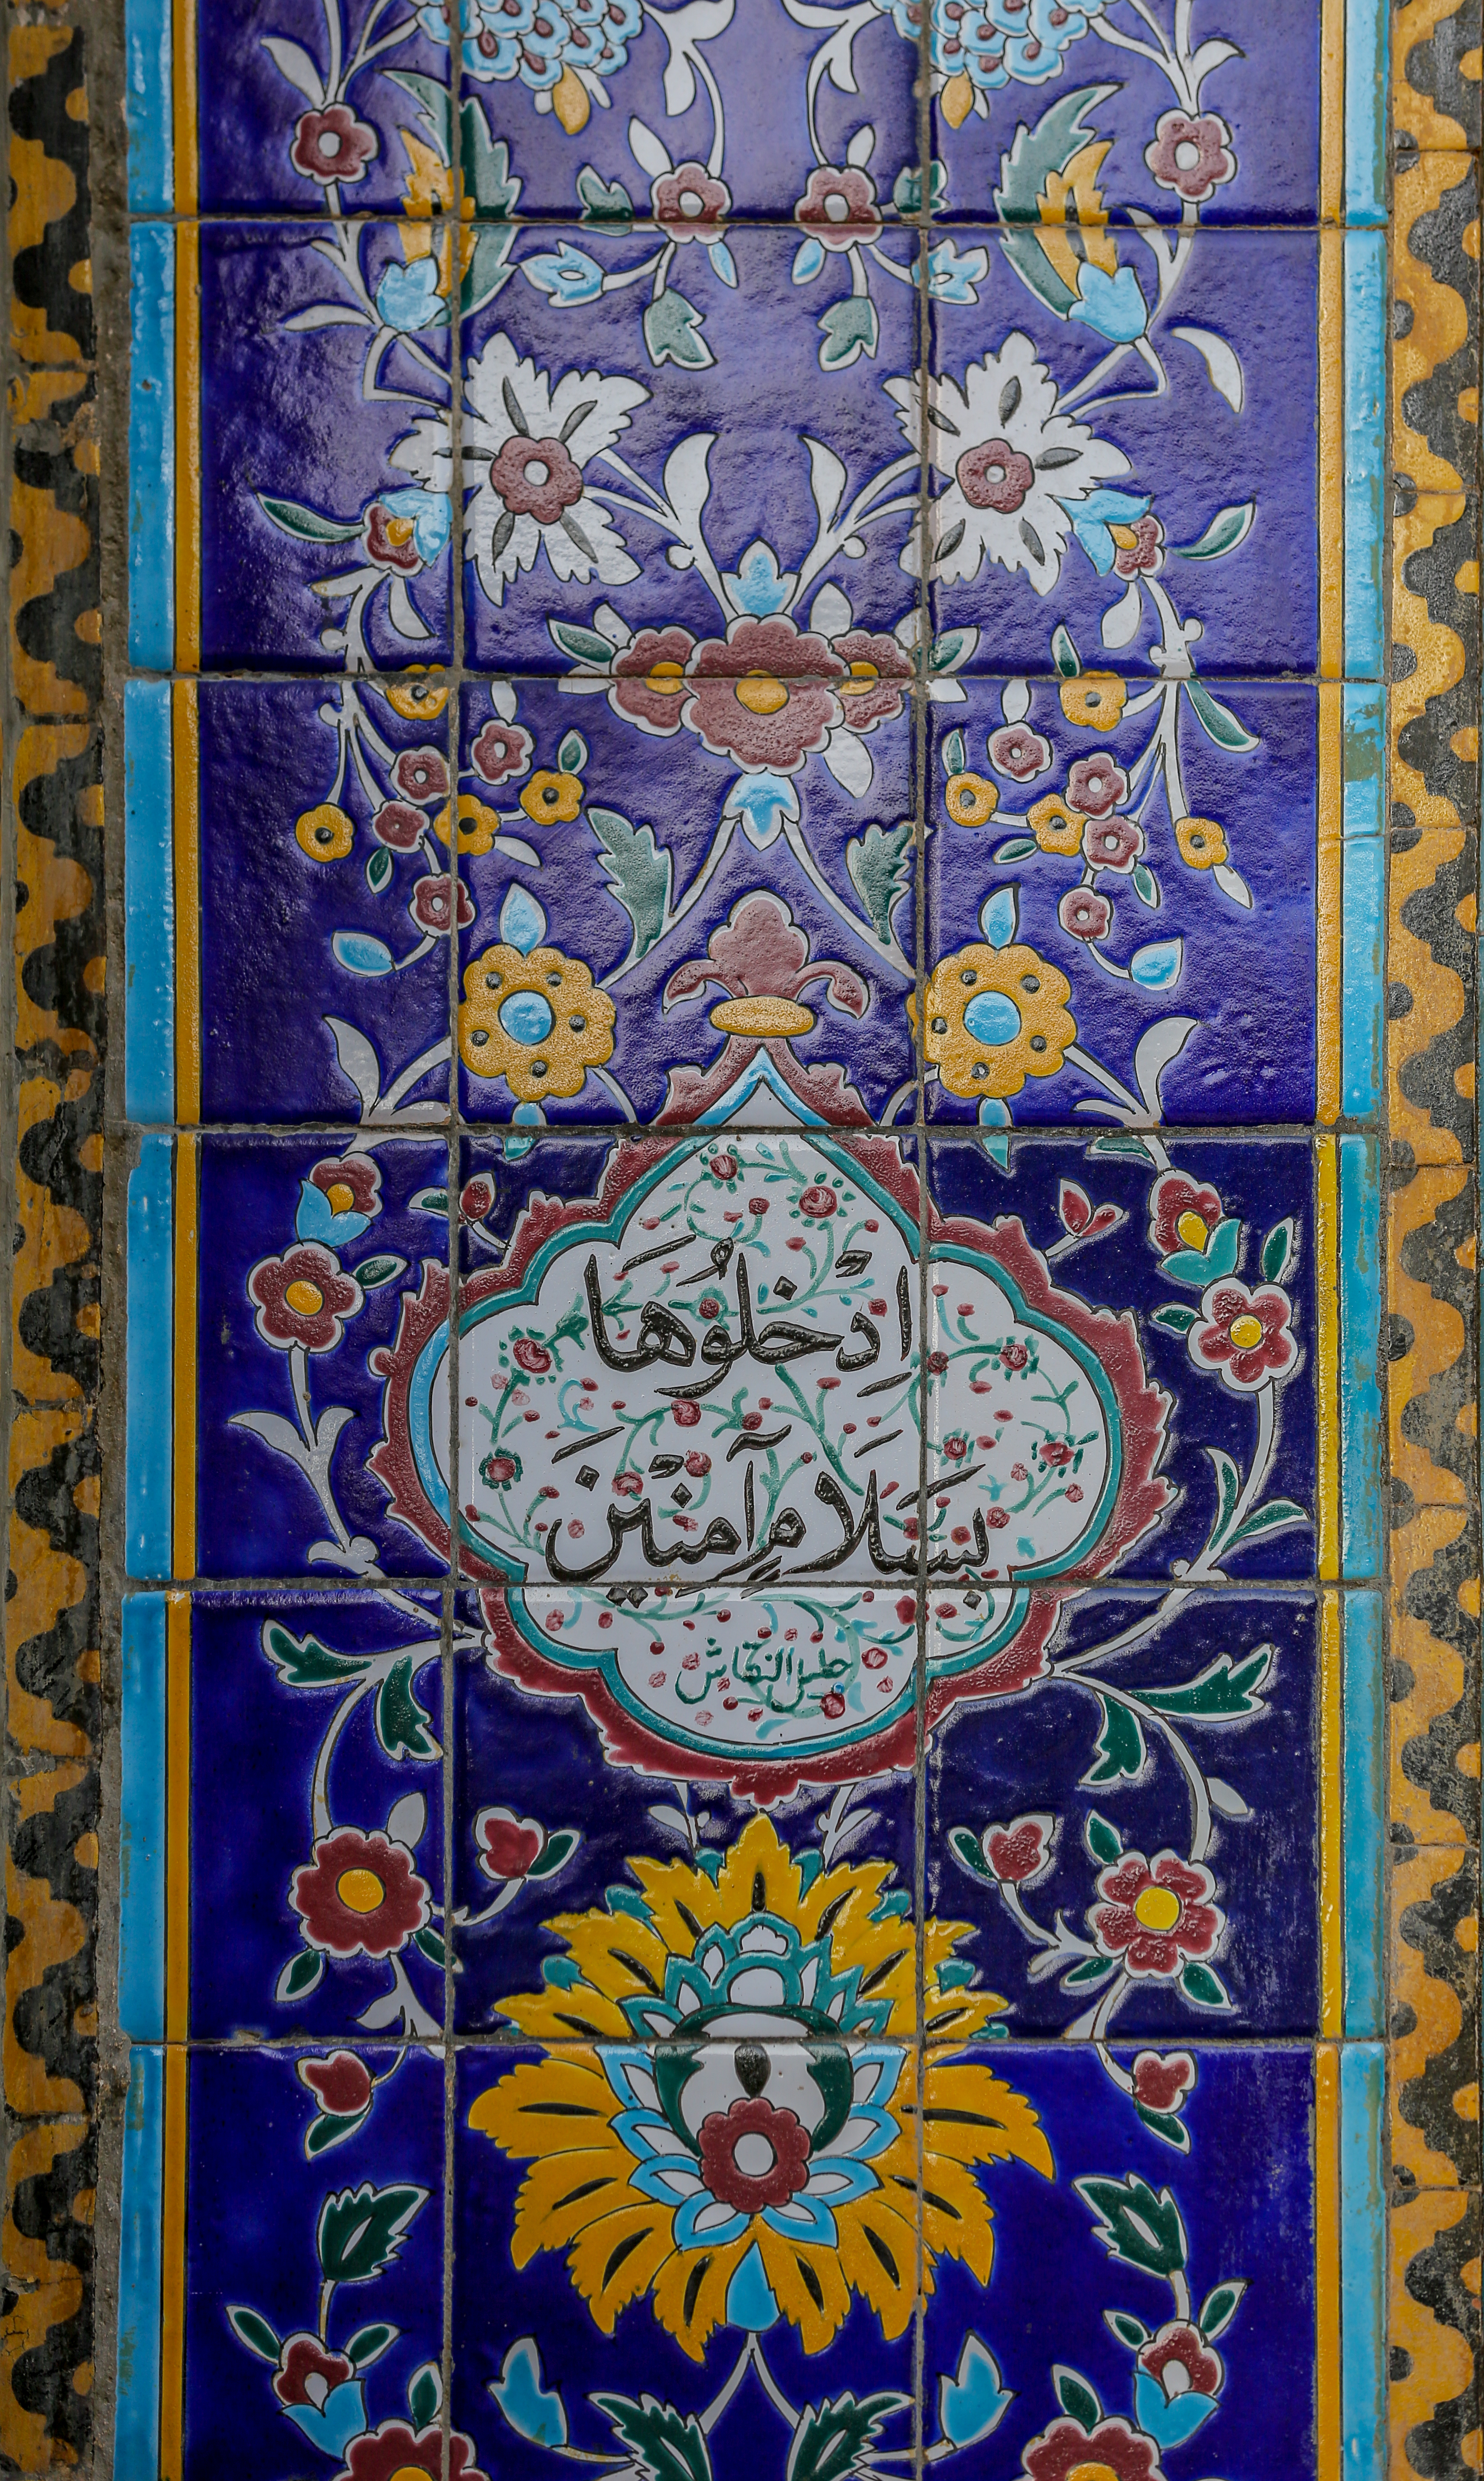 اِدْخلُوهَا
بسَلَامٍ آمِنْينَ
خليل النقاش